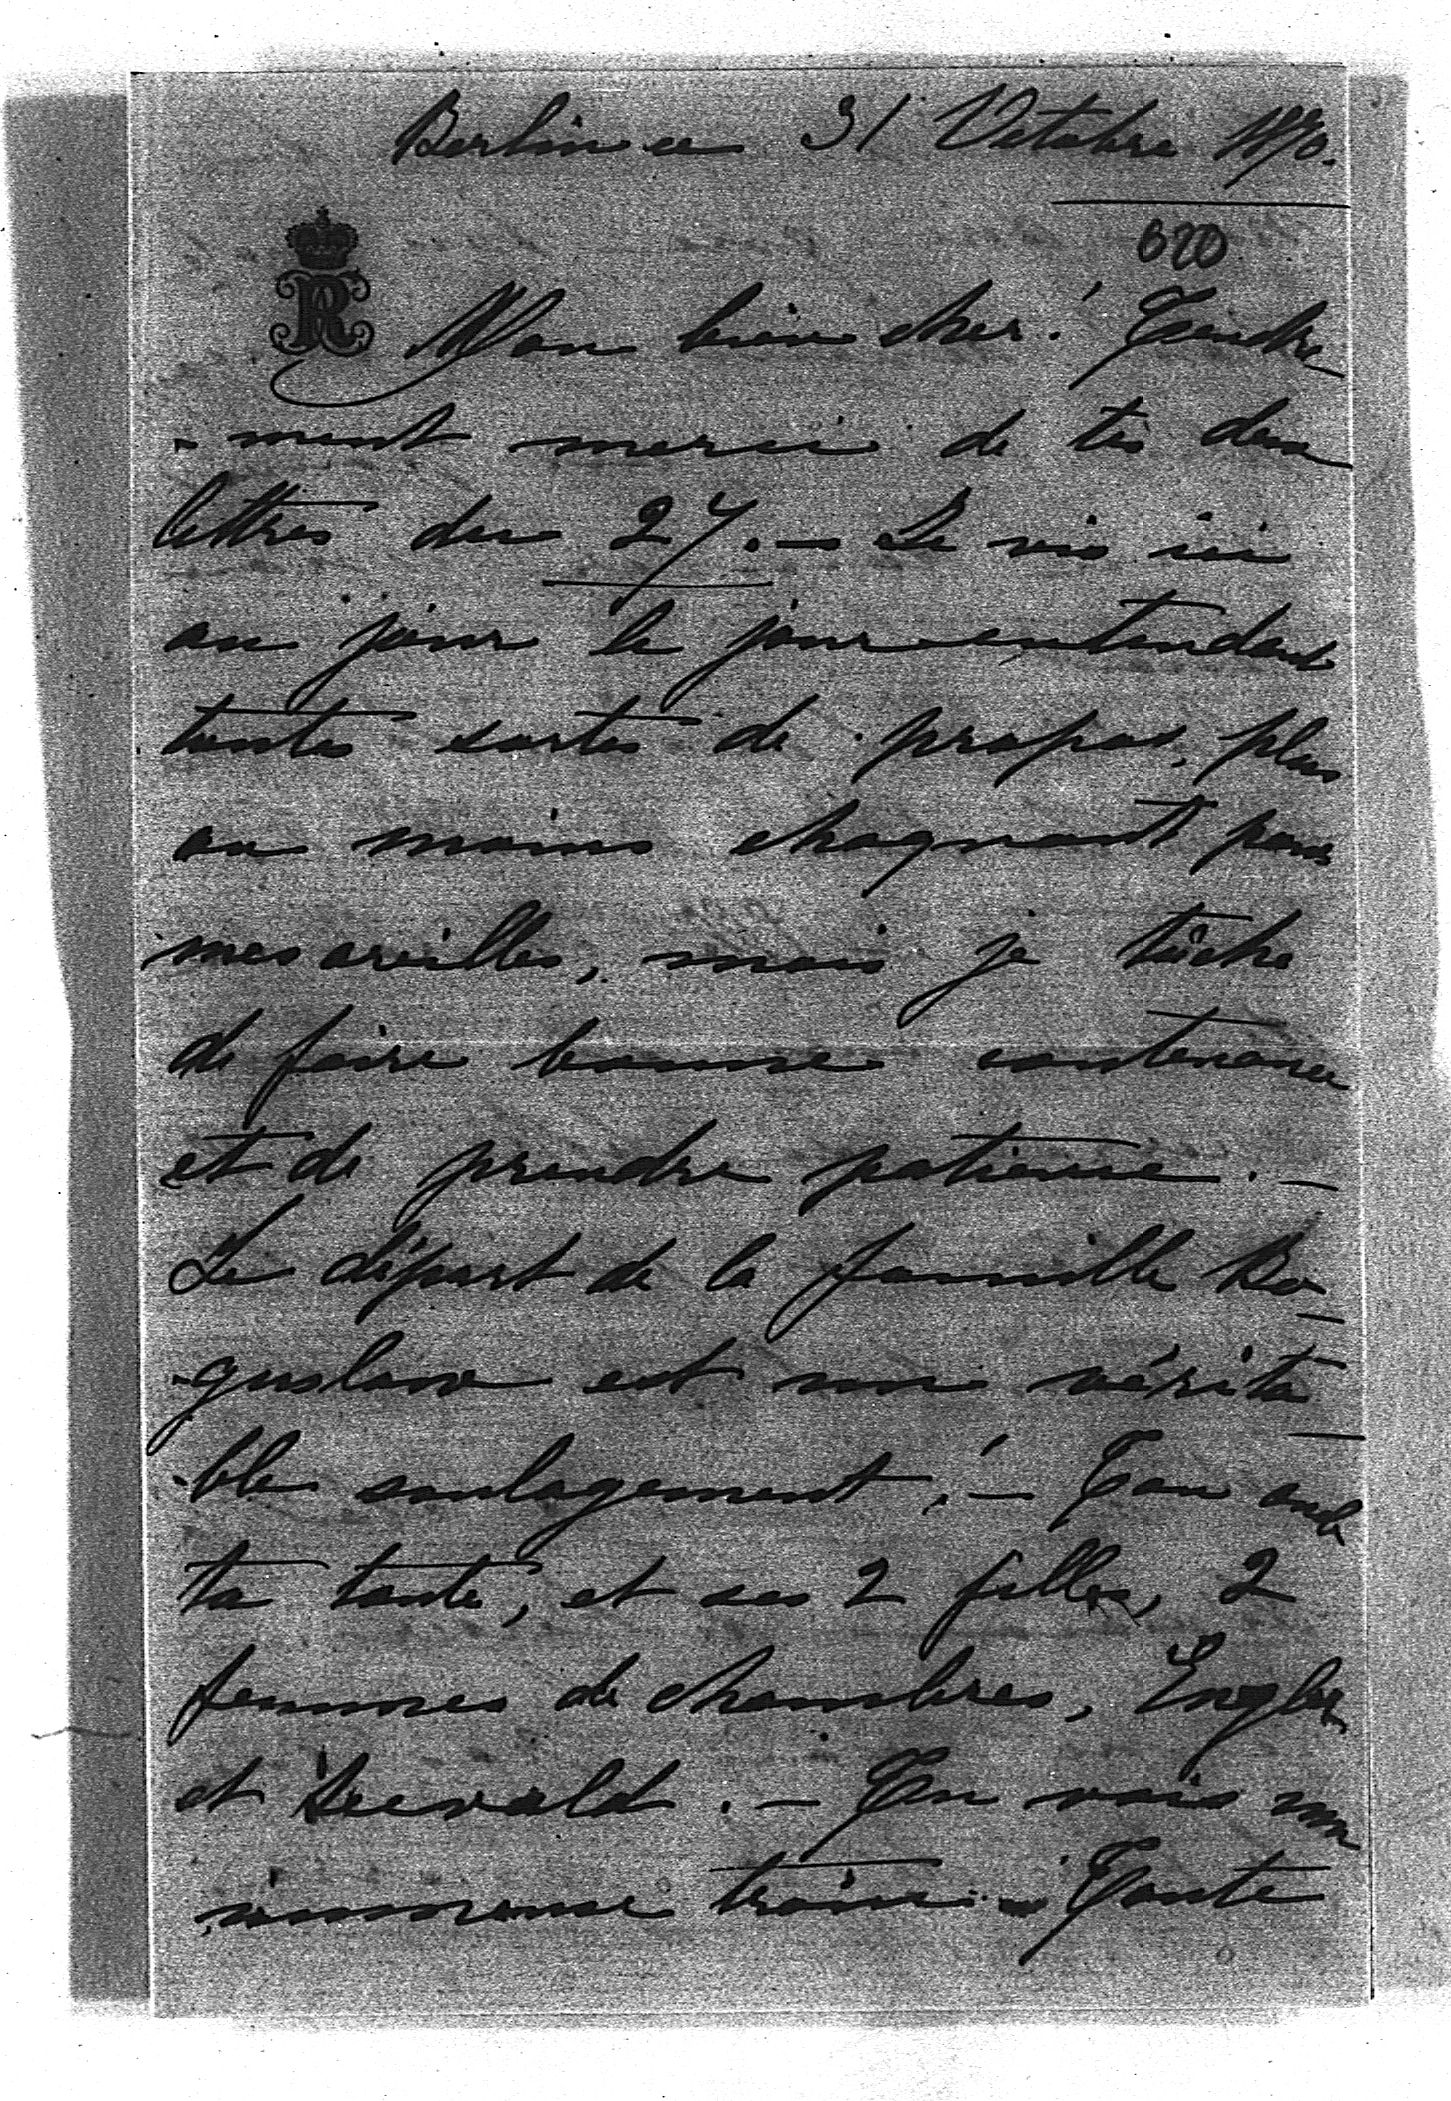 Berlin ce 31 Octobre 1870.
620
R
Mon bien cher! Tendre
-ment merci de tes deux
lettres du 27. — Je vis ici
au jour le jour entendant
toutes sortes de propos, plus
ou moins choquant pour
mes oreilles, mais je tâche
de faire bonne contenance
et de prendre patience. —
Le départ de la famille Bo-
-guslaw est une vérita-
-ble soulagement! — Ton oncle
ta tante, et ses 2 filles, 2
femmes de chambres,
et — Tu vois une
immense Toute